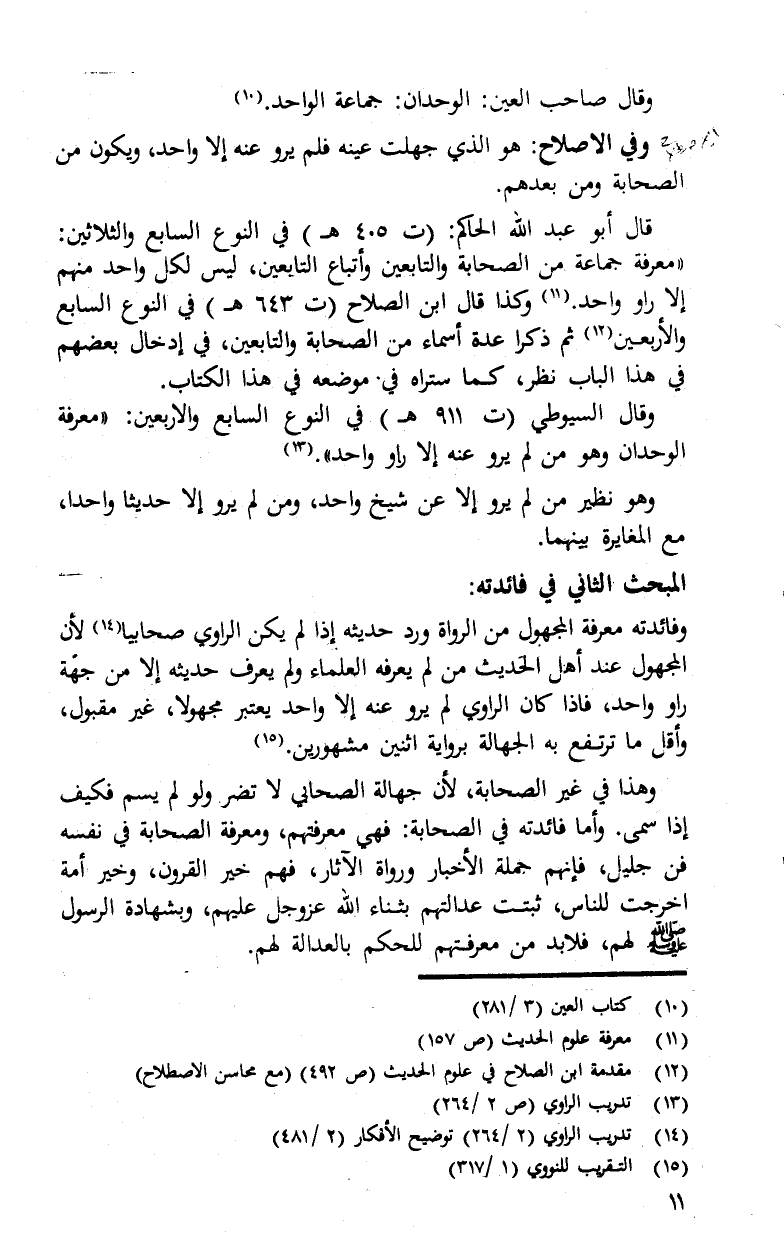 وقال صاحب العين: الوحدان: جماعة الواحد.(١٠)
وفي الاصلاح: هو الذي جهلت عينه فلم يرو عنه إلا واحد، ويكون من
الصحابة ومن بعدهم.
قال أبو عبد الله الحاكم: (ت ٤٠٥ هـ ) في النوع السابع والثلاثين:
«معرفة جماعة من الصحابة والتابعين وأتباع التايعين، ليس لكل واحد منهم
إلا راو واحد.(١١) وكذا قال ابن الصلاح (ت ٦٤٣ هـ ) في النوع السابع
والأربعين(١٢) ثم ذكرا عدة أسماء من الصحابة والتابعين، في إدخال بعضهم
في هذا الباب نظر، كما ستراه في موضعه في هذا الكتاب.
وقال السيوطي (ت ٩١١ هـ ) في النوع السابع والاربعين: «معرفة
الوحدان وهو من لم يرو عنه إلا راو واحد».(١٣)
وهو نظير من لم يرو إلا عن شيخ واحد، ومن لم يرو إلا حديثا واحدا،
مع المغايرة بينهما.
المبحث الثاني في فائدته:
وفائدته معرفة المجهول من الرواة ورد حديثه إذا لم يكن الراوي صحابيا(١٤) لأن
المجهول عند أهل الحديث من لم يعرفه العلماء ولم يعرف حديثه إلا من جهّة
راو واحد، فاذا كان الراوي لم يرو عنه إلا واحد يعتبر مجهولا، غير مقبول،
وأقل ما ترتفع به الجهالة برواية اثنين مشهورين.(١٥)
وهذا في غير الصحابة، لأن جهالة الصحابي لا تضر ولو لم يسم فكيف
إذا سمى. وأما فائدته في الصحابة: فهي معرفتهم، ومعرفة الصحابة في نفسه
فن جليل، فإنهم جملة الأخبار ورواة الآثار، فهم خير القرون، وخير أمة
اخرجت للناس، ثبتت عدالتهم بثناء الله عزوجل عليهم، وبشهادة الرسول
ﷺ لهم، فلابد من معرفتهم للحكم بالعدالة لهم.
(١٠) كتاب العين (٣ /٢٨١)
(١١) معرفة علوم الحديث (ص ١٥٧)
(١٢) مقدمة ابن الصلاح في علوم الحديث (ص ٤٩٢) (مع محاسن الاصطلاح)
(١٣) تدريب الراوي (ص ٢ /٢٦٤)
(١٤) تدريب الراوي (٢ /٢٦٤) توضيح الأفكار (٢ /٤٨١)
(١٥) التقريب للنووي (١ /٣١٧)
١١